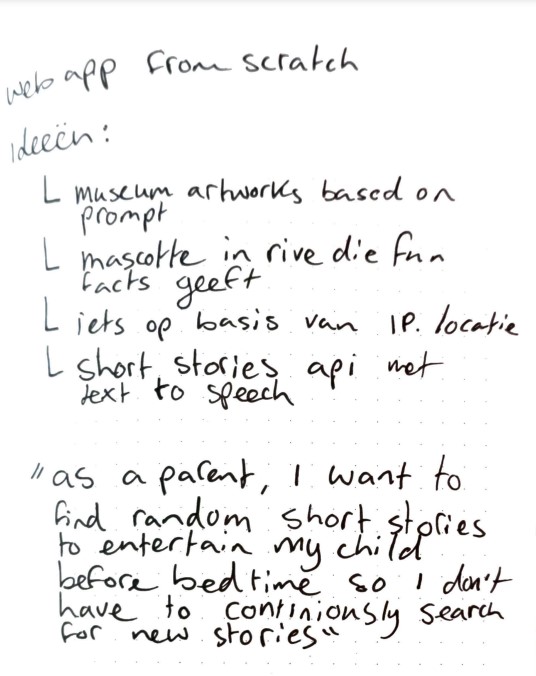 web app from scratch
ideeën:
L museum artworks based on
prompt
L mascotte in rive die fun
facts geeft
L iets op basis van IP. locatie
L short stories api met
text to speech
"as a parent, I want to
find random short stories
to entertain my child
before bedtime so I don't
have to continiously search
for new stories"